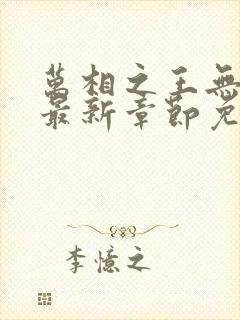 萬相之王無
最新章節免
李憶之